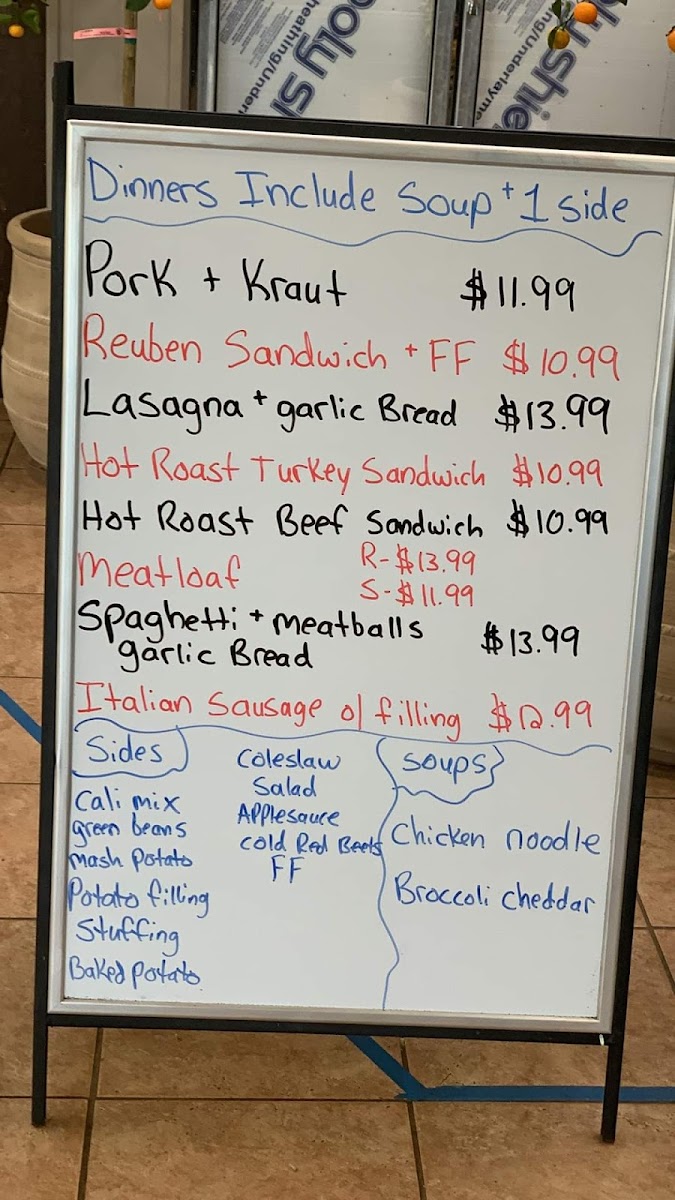 poly shie
heathing/Underl
poly shie
ng/Underlayme
Dinners Include Soup + 1 side
Pork + Kraut $11.99
Reuben Sandwich + FF $10.99
Lasagna + garlic Bread $13.99
Hot Roast Turkey Sandwich $10.99
Hot Roast Beef Sandwich $10.99
Meatloaf R-$13.99
S-$11.99
Spaghetti + meatballs $13.99
garlic Bread
Italian Sausage o/ filling $12.99
Sides
Cali mix
green beans
mash Potato
Potato filling
Stuffing
Baked potato
Coleslaw
Salad
Applesauce
cold Red Beets
FF
Soups
Chicken noodle
Broccoli cheddar